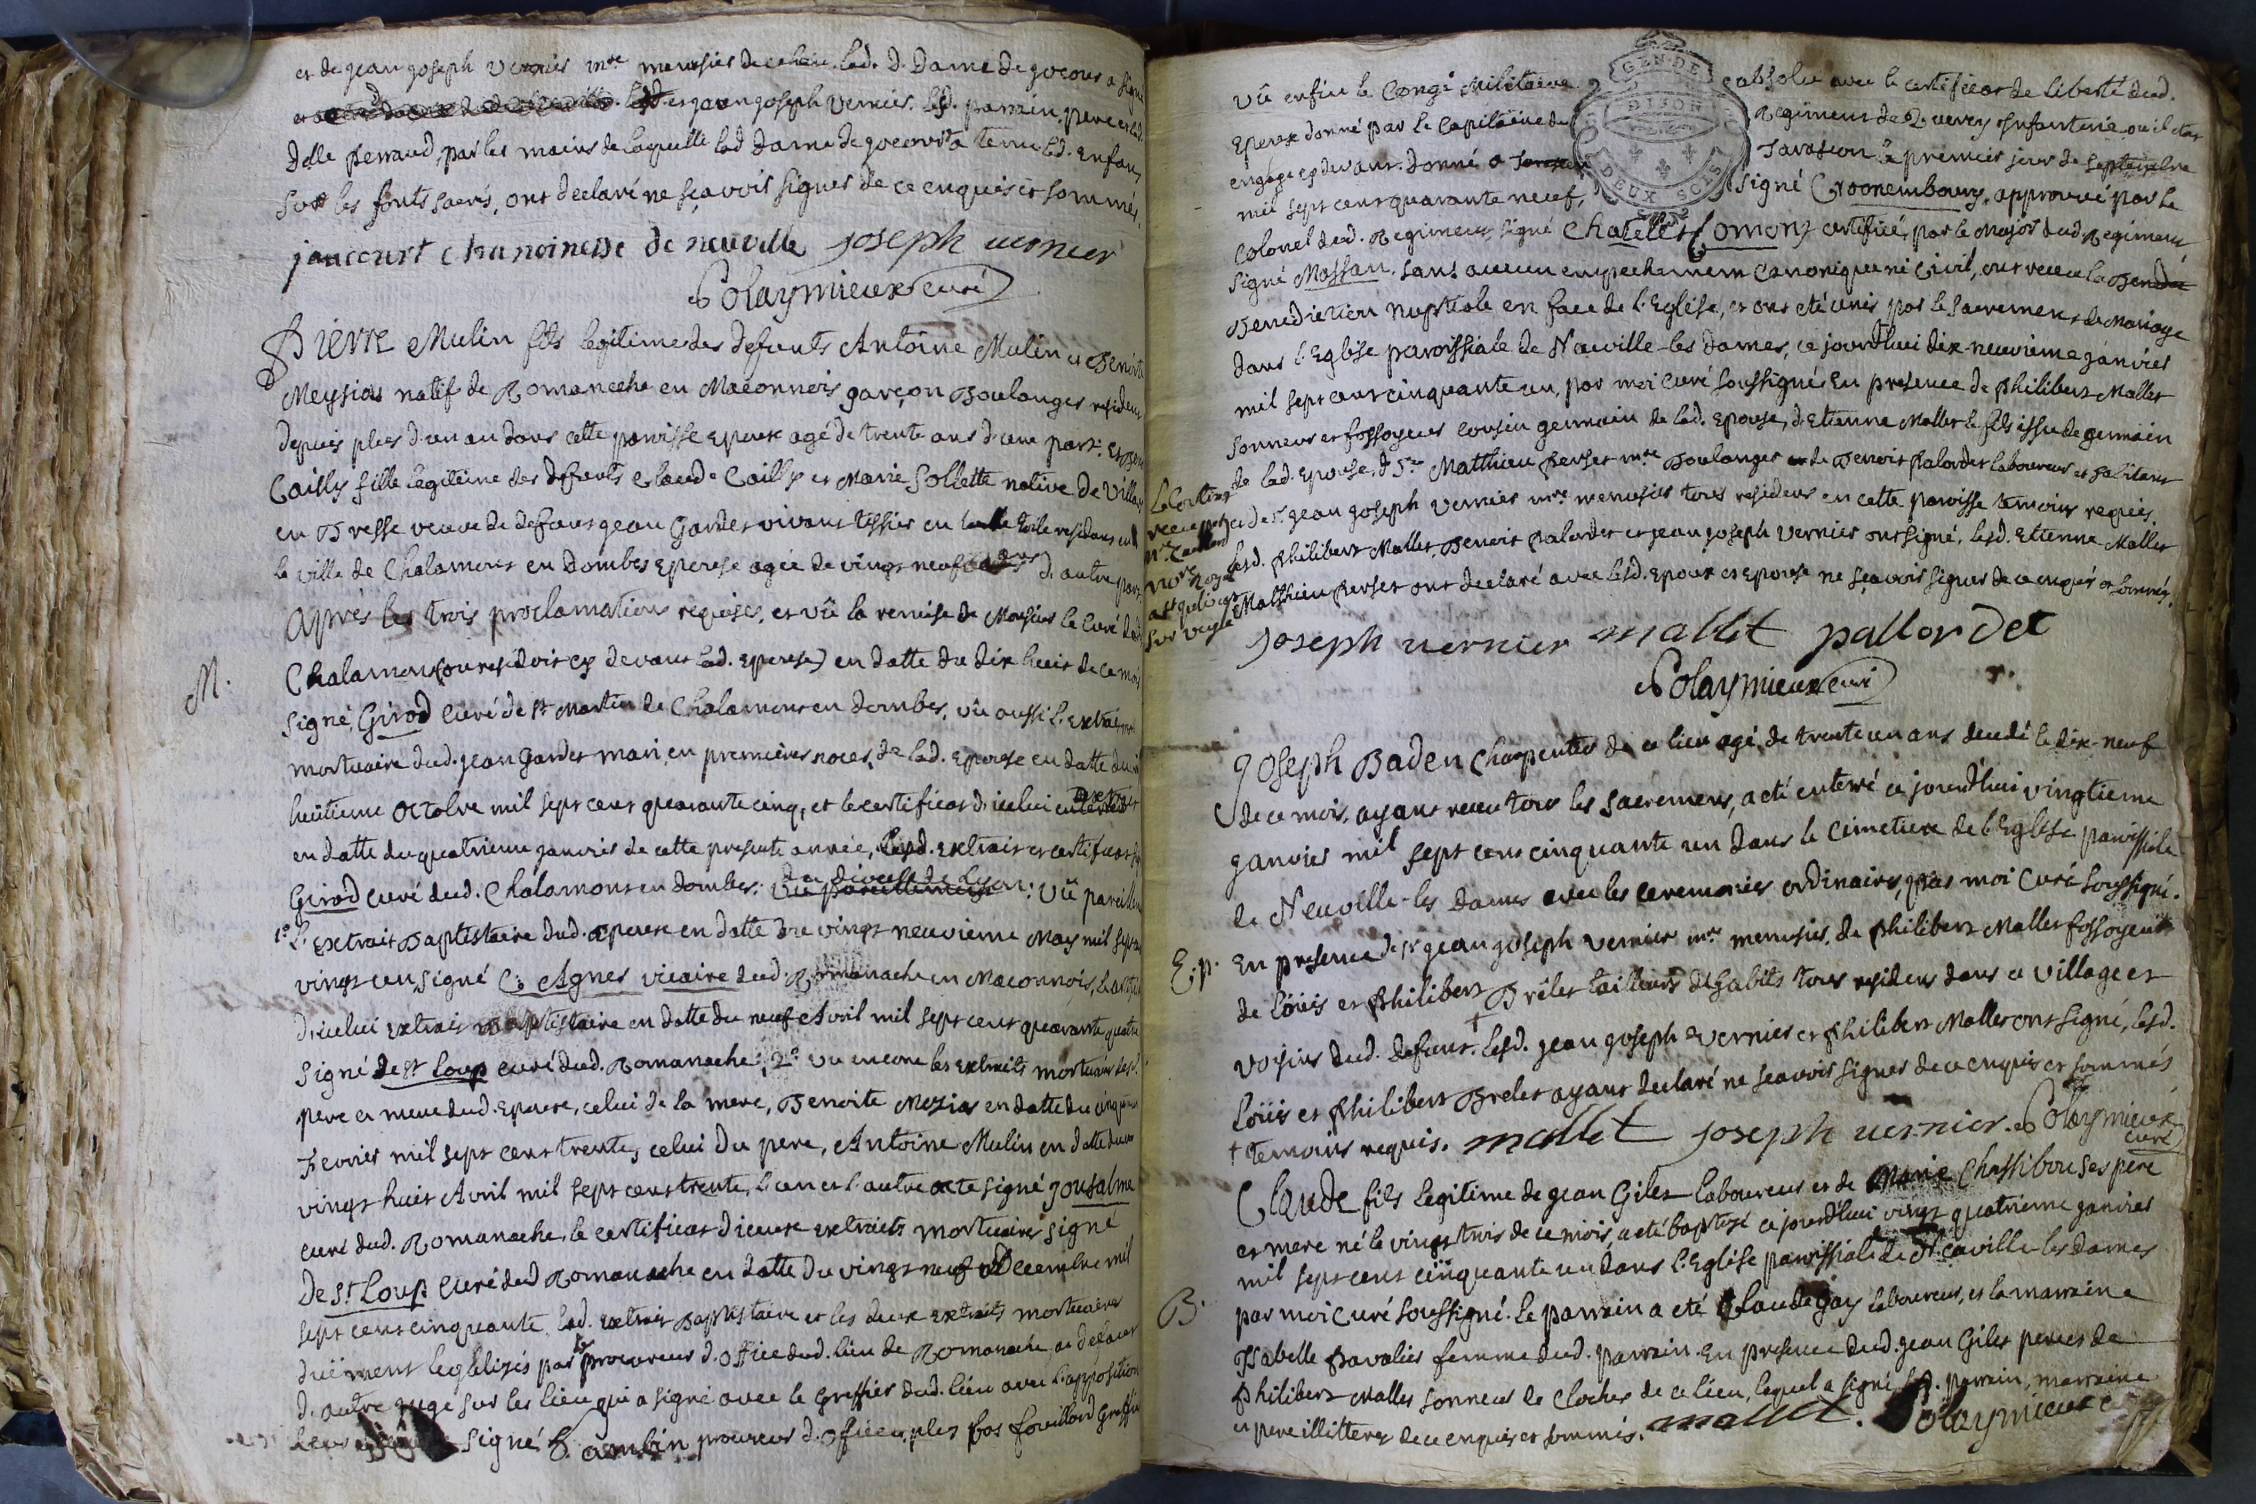 et de jean joseph Vernier mre menusier de ce lieu. lad. D. Dame de jocour a signé
et jean joseph Vernier. led. parrain, pere et lad.
Delle Perraud, par les mains de laquelle lad dame de jocourt a tenu led. enfan
sur les fonts sacrés, ont declaré ne sçavoir signer de ce enquis et sommés.
jaucourt chanoinesse de neuville joseph vernier
Polaymieux curé
Pierre Mulin fils legitime des defunts Antoine Mulin et Benoite
Meysias natif de Romaneche en Maconnois garçon Boulanger residen
depuis plus d'un an dans cette paroisse epoux agé de trente ans d'une part: et
Cailly fille legitime des defunts Claude Cailly et Marie Sollette native de Villar
en Bresse veuve de defunt jean Gardet vivant tissier en toile residans en
la ville de Chalamont en Dombes epouse agée de vingt neuf ans d'autre part
après les trois proclamations requises, et vû la remise de Monsieur le Curé dud
Chalamont (ou residoit cy devant lad. epouse) en datte du dix huit de ce mois
M.
signé, Girod curé de st Martin de Chalamont en dombes, vû aussi l'extrait
mortuaire dud. jean Gardet mari en premieres noces, de lad. Epouse en datte du
huitieme octobre mil sept cent quarante cinq, et le certificat d'icelui
en datte du quatrieme janvier de cette presente année, lesd. extrait et certificat
Girod curé dud. Chalamont en dombes du diocese de Lyon: Vû pareillem
1° l'extrait Baptistaire dud. epoux en datte du vingt neuvieme May mil sept cen
vingt un, signé C. Agnes vicaire dud. Romaneche en Maconnois, le certificat
d'icelui extrait Baptistaire en datte du neuf Avril mil sept cent quarante quatre
signé de st Loup curé dud. Romaneche; 2° vû encore les extraits mortuaires des
pere et mere dud. epoux, celui de la mere, Benoite Mezias en datte du cinquieme
Fevrier mil sept cent trente, celui du pere, Antoine Mulin en datte du
vingt huit Avril mil sept cent trente, l'un et l'autre acte signé jousalme
curé dud. Romaneche, le certificat d'iceux extraits mortuaires signé
De St. Loup curé dud Romaneche en datte du vingt neuf Decembre mil
sept cent cinquante, led. extrait Baptistaire et les deux extraits mortuaires
duëment legalizés par le procureur d'office dud. lieu de Romaneche au defaut
d'autre juge sur les lieu qui a signé avec le Greffier dud. lieu avec l'apposition
signé procureur d'office et plus bas Greffier
GEN. DE
DIJON
DEUX SOLS
Vû enfin le Congé Militaire absolu avec le certificat de liberté dud.
Epoux donné par le Capitaine du Regiment de Quercy infanterie où il etoit
engagé cy devant donné a Tarascon le premier jour de septembre
mil sept cent quarante neuf, signé Croonembourg, approuvé par le
Colonel dud. Regiment, signé Chatellet Lomont certifié, par le Major dud Regiment
signé Massan. sans aucun empechement Canonique ni Civil, ont receu la
Benediction Nuptiale en face de l'Eglise, et ont eté unis par le sacrement de Mariage
dans l'Eglise paroissiale de Neuville-les Dames, ce jourd'hui dix neuvieme janvier
mil sept cent cinquante un, par moi curé soussigné. En presence de Philibert Mallet
sonneur et fossoyeur cousin germain de lad. Epouse, d'Etienne Mallet le fils issu de germain
de lad. Epouse, de Sr. Matthieu Perset mre Boulanger de Benoit Palordet laboureur et habitant
et de sr. jean joseph Vernier mre menusier tous residens en cette paroisse temoins requis.
lesd. Philibert Mallet, Benoit Palordet et jean joseph Vernier ont signé, lesd. Etienne Mallet
Matthieu Perset ont declaré avec lesd. Epoux et epouse ne sçavoir signer de ce enquis et sommés.
joseph vernier mallet pallordet
Polaymieux curé
Joseph Baden charpentier de ce lieu agé de trente un ans decedé le dix-neuf
de ce mois, ayant receu tous les sacremens, a eté enterré ce jourd'hui vingtieme
janvier mil sept cent cinquante un dans le cimetiere de l'Eglise paroissiale
de Neuville-les Dames avec les ceremonies ordinaires, par moi Curé soussigné.
E.p. En presence de sr jean joseph Vernier mre menusier, de Philibert Mallet fossoyeur
de Loüis et Philibert Brêlet tailleurs d'habits tous residens dans ce village et
voisins dud. defunt. † lesd. jean joseph Vernier et Philibert Mallet ont signé, lesd.
Loüis et Philibert Brelet ayant declaré ne sçavoir signer de ce enquis et sommés
† temoins requis. mallet joseph vernier. Polaymieux
curé
Claude fils legitime de jean Gilet laboureur et de Marie Chassibou ses pere
et mere né le vingt trois de ce mois, a eté baptizé ce jourd'hui vingt quatrieme janvier
mil sept cent cinquante un dans l'Eglise paroissiale de Neuville les Dames
B. par moi Curé soussigné. le parrain a eté Claude Gay laboureur, et la marraine
Isabelle Pavalier femme dud. parrain. En presence dud. jean Gilet pere et de
Philibert Mallet sonneur de cloches de ce lieu, lequel a signé, led. parrain, marraine
et pere illitterez de ce enquis et sommés. mallet. Polaymieux